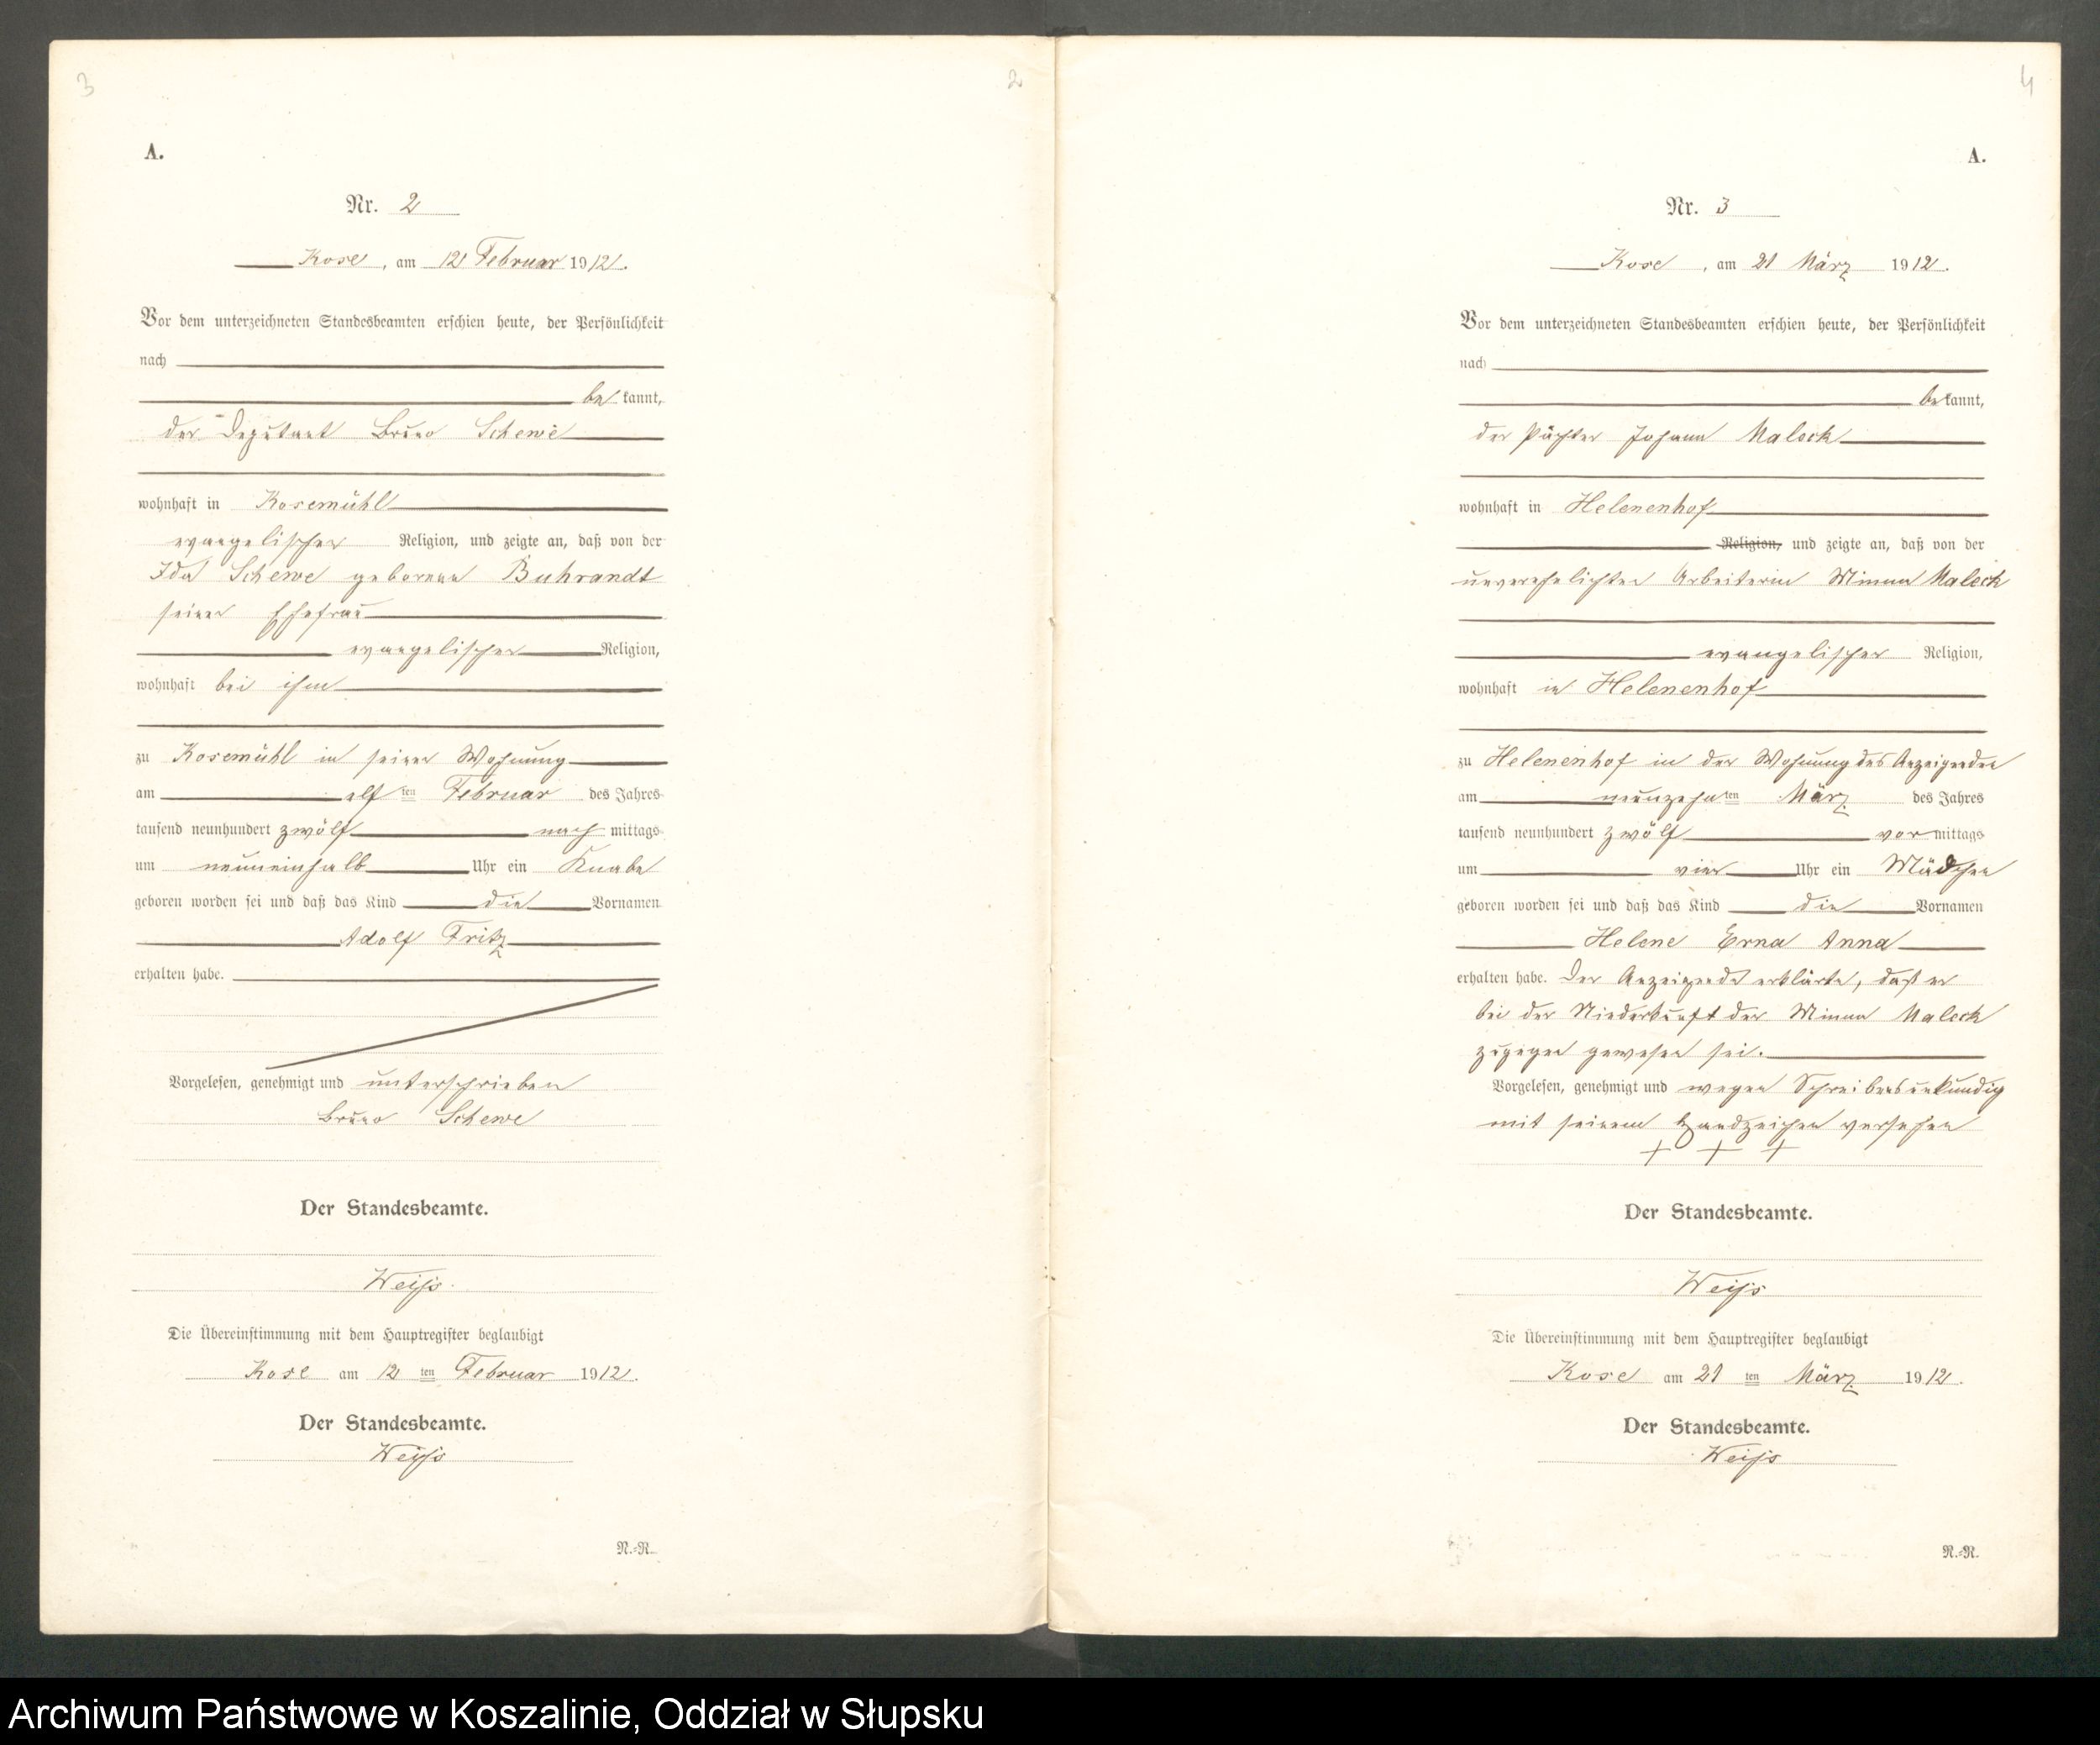 3
2
A.
Nr. 2
Kose, am 12 Februar 1912.
Vor dem unterzeichneten Standesbeamten erschien heute, der Persönlichkeit
nach
bekannt,
der Deputant Bruno Schewe
wohnhaft in Kosemühl
evangelischer Religion, und zeigte an, daß von der
Ida Schewe geborenen Buhrandt
seiner Ehefrau
evangelischer Religion,
wohnhaft bei ihm
zu Kosemühl in seiner Wohnung
am elf ten Februar des Jahres
tausend neunhundert zwölf nach mittags
um neuneinhalb Uhr ein Knabe
geboren worden sei und daß das Kind die Vornamen
Adolf Fritz
erhalten habe.
Vorgelesen, genehmigt und unterschrieben
Bruno Schewe
Der Standesbeamte.
Weiss.
Die Übereinstimmung mit dem Hauptregister beglaubigt
Kose am 12 ten Februar 1912.
Der Standesbeamte.
Weiss
N.-R.
4
A.
Nr. 3
Kose, am 21 März 1912.
Vor dem unterzeichneten Standesbeamten erschien heute, der Persönlichkeit
nach
bekannt,
der Pächter Johann Maleck
wohnhaft in Helenenhof
Religion, und zeigte an, daß von der
unverehelichten Arbeiterin Minna Maleck
evangelischer Religion,
wohnhaft in Helenenhof
zu Helenenhof in der Wohnung des Anzeigenden
am neunzehn ten März des Jahres
tausend neunhundert zwölf vor mittags
um vier Uhr ein Mädchen
geboren worden sei und daß das Kind die Vornamen
Helene Erna Anna
erhalten habe. Der Anzeigende erklärte, daß er
bei der Niederkunft der Minna Maleck
zugegen gewesen sei.
Vorgelesen, genehmigt und wegen Schreibensunkundig
mit seinem Handzeichen versehen
+ + +
Der Standesbeamte.
Weiss
Die Übereinstimmung mit dem Hauptregister beglaubigt
Kose am 21 ten März 1912.
Der Standesbeamte.
Weiss
N.-R.
Archiwum Państwowe w Koszalinie, Oddział w Słupsku